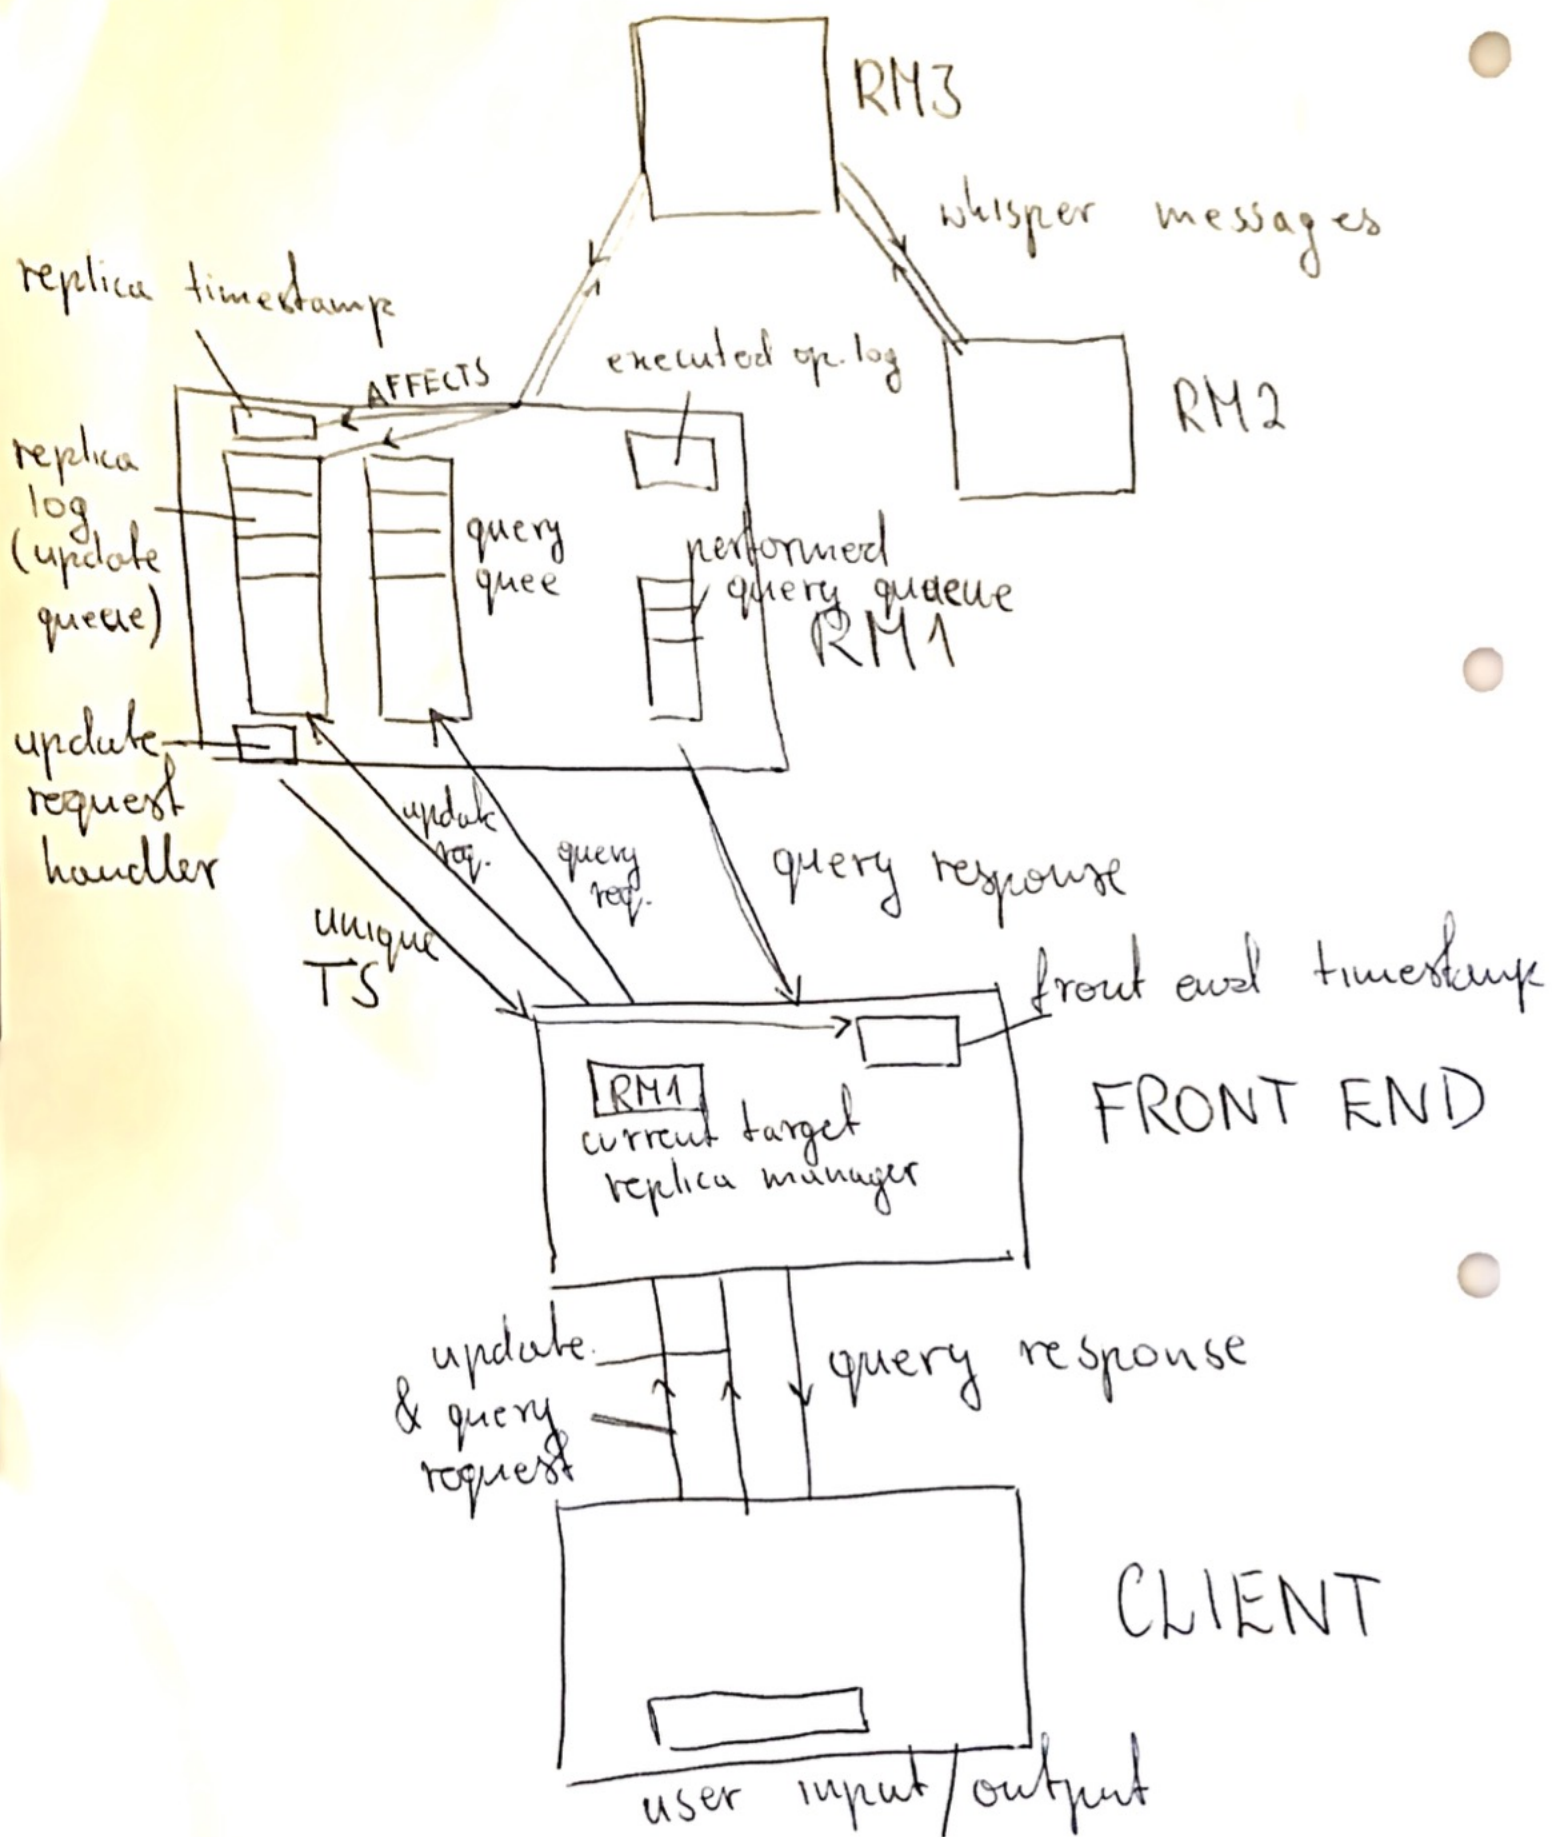 RM3
whisper messages
replica timestamp
AFFECTS
executed op. log
RM2
replica
log
(update
queue)
query
quee
performed
query quaeue
RM1
update
request
handler
update
req.
query
req.
query response
unique
TS
front end timestamp
RM1
current target
replica manager
FRONT END
update
& query
request
query response
CLIENT
user input/output